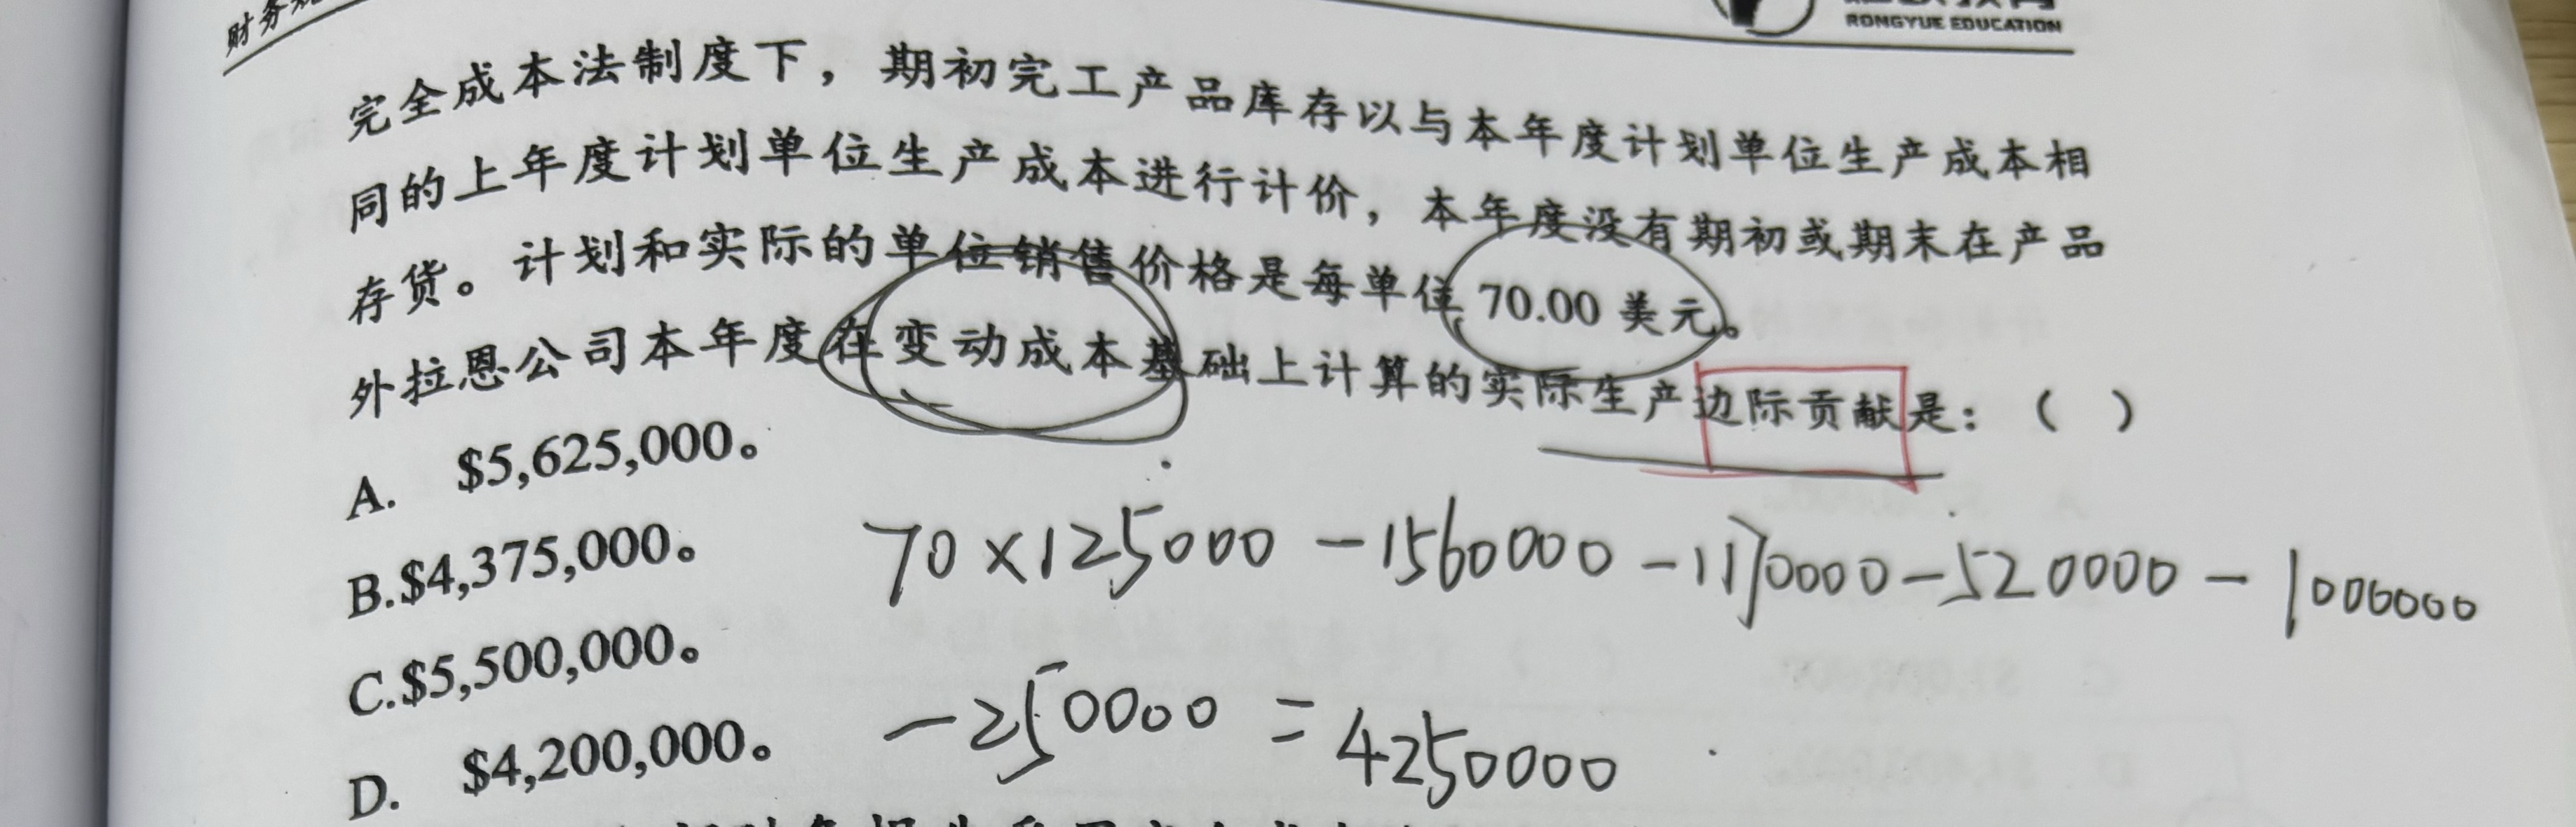 财务
RONGYUE EDUCATION
完全成本法制度下，期初完工产品库存以与本年度计划单位生产成本相
同的上年度计划单位生产成本进行计价，本年度没有期初或期末在产品
存货。计划和实际的单位销售价格是每单位 70.00 美元。
外拉恩公司本年度在变动成本基础上计算的实际生产边际贡献是：（ ）
A. $5,625,000。
B.$4,375,000。
C.$5,500,000。
D. $4,200,000。
70×125000 -1560000 -1170000-520000 - 1000000
-250000 = 4250000